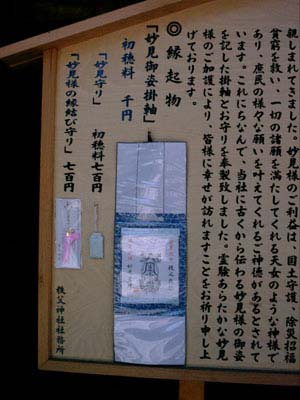 親しまれてきました。妙見様のご利益は、国土守護、除災招福
貧窮を救い、一切の諸願を満たしてくれる天女のような神様で
あり、庶民の様々な願いを叶えてくれるご神徳があるとされて
います。これにちなんで、当社に古くから伝わる妙見様の御姿
を記した掛軸とお守りを奉製致しました。霊験あらたかな妙見
様のご加護により、皆様に幸せが訪れますことをお祈り申し上
げております。
◎縁起物
「妙見御姿掛軸」
初穂料 千円
「妙見守り」 初穂料七百円
「妙見様の縁結び守り」 七百円
秩父神社社務所